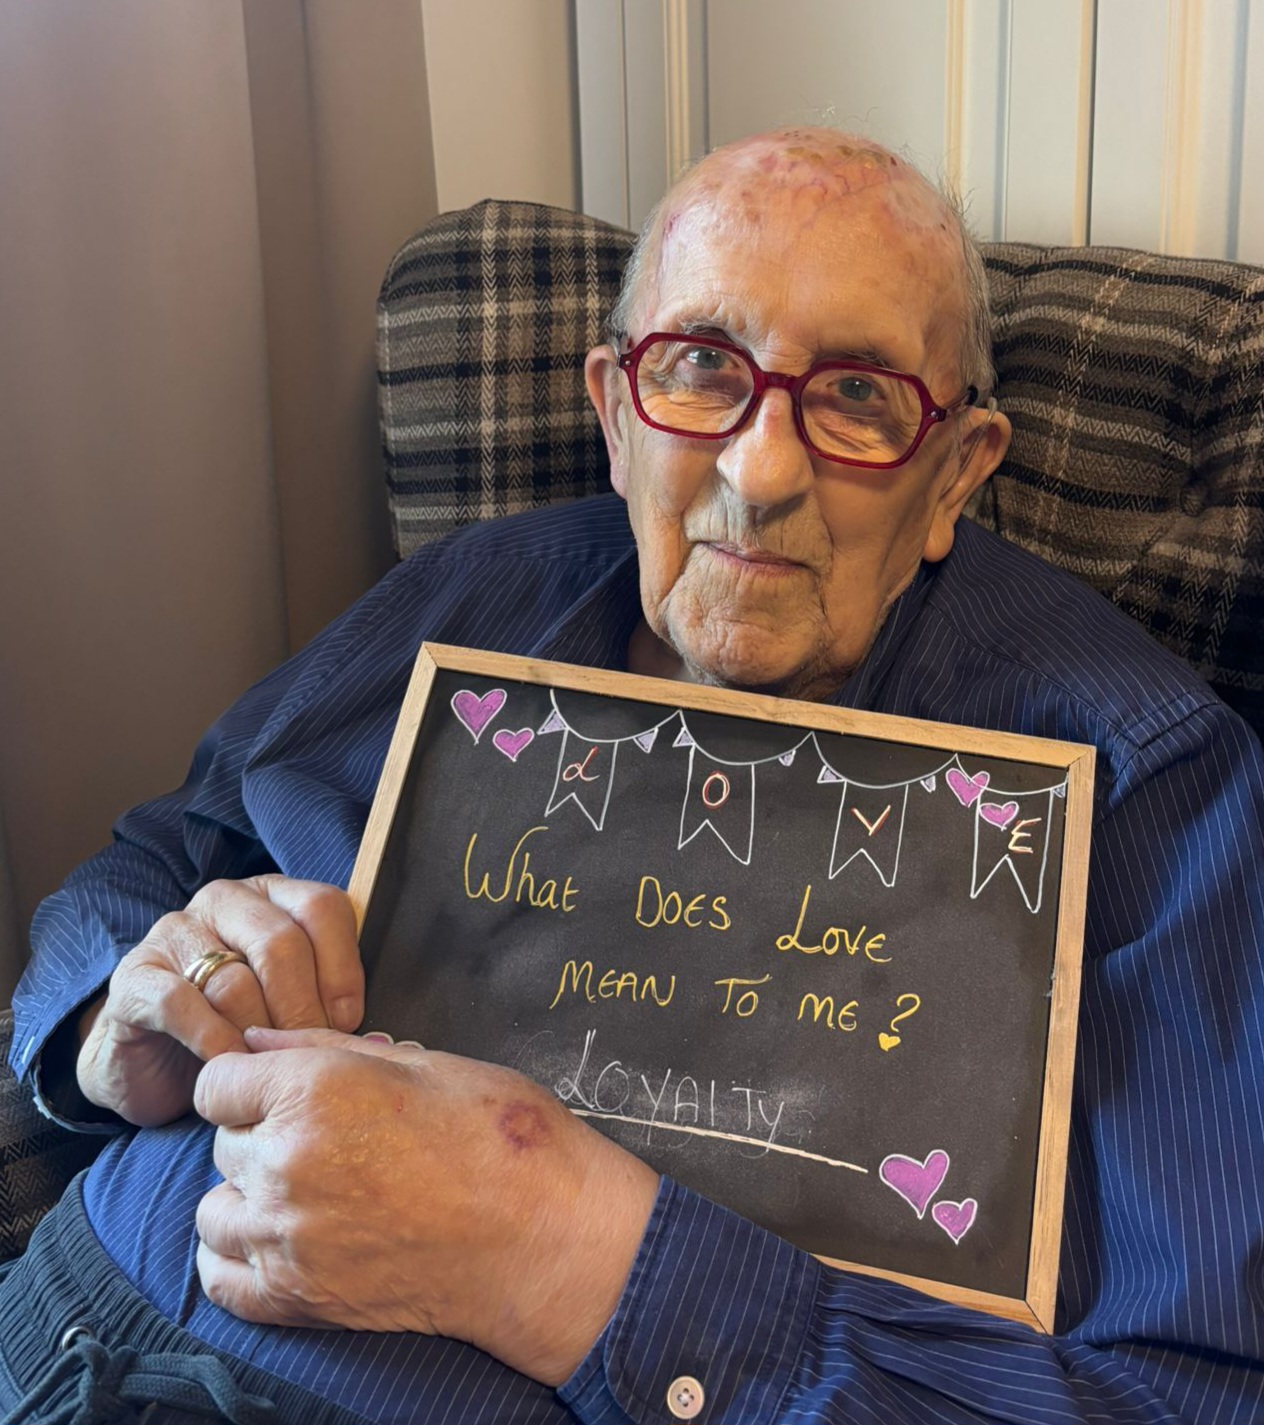 LOVE
What DOES LOVE
MEAN TO ME?
LOYALTY